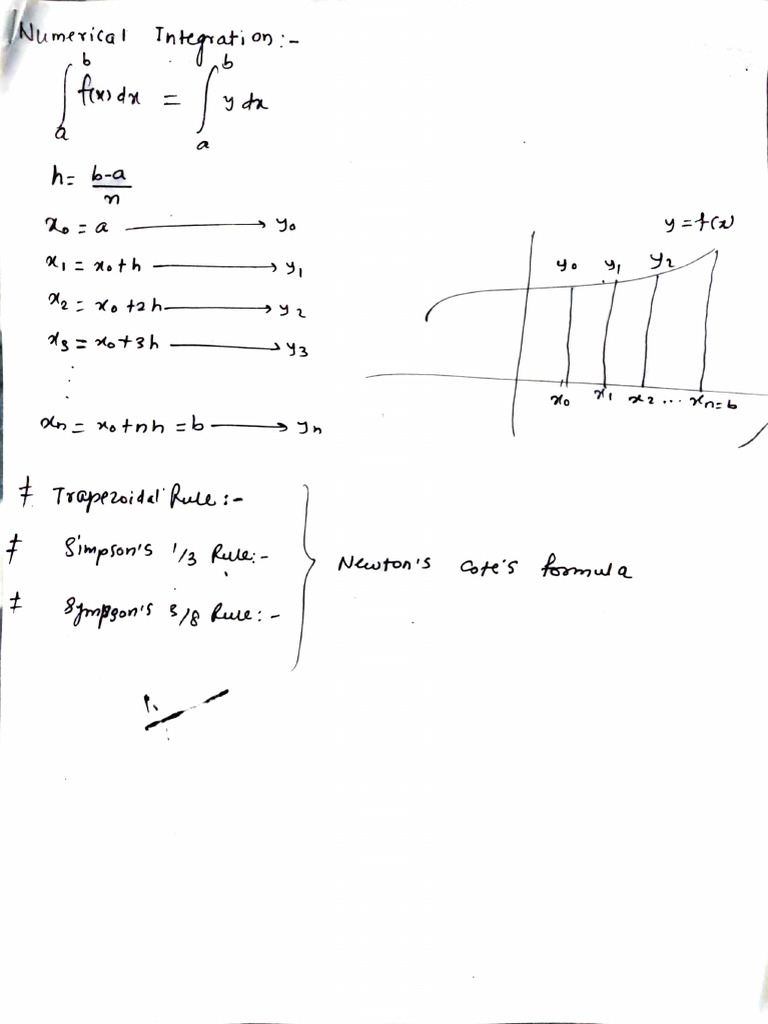 Numerical Integration:-
∫_a^b f(x) dx = ∫_a^b y dx
h = (b-a)/n
x₀ = a ⟶ y₀
x₁ = x₀+h ⟶ y₁
x₂ = x₀+2h ⟶ y₂
x₃ = x₀+3h ⟶ y₃
⋮
xₙ = x₀+nh = b ⟶ yₙ
y = f(x)
y₀ y₁ y₂
x₀ x₁ x₂ ... xₙ=b
‡ Trapezoidal Rule:-
‡ Simpson's 1/3 Rule:-
‡ Sympson's 3/8 Rule:-
Newton's Cote's formula